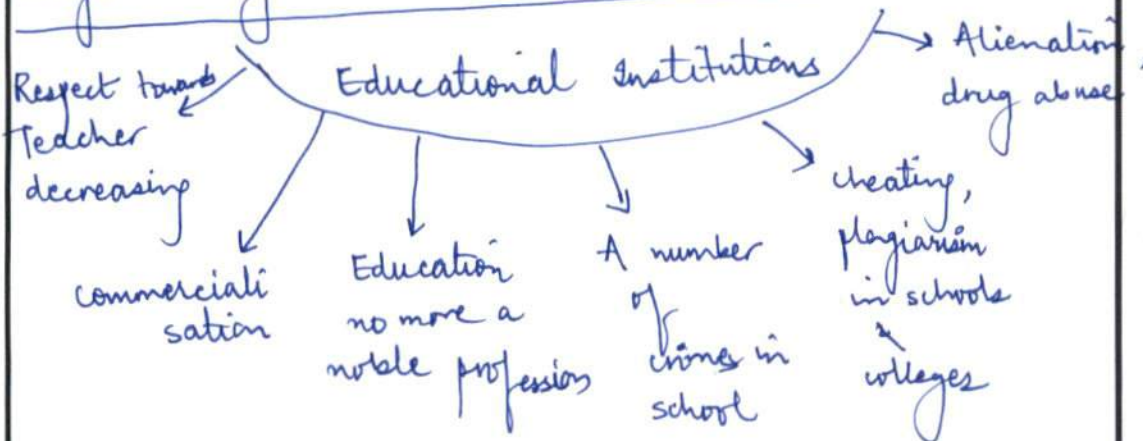 Educational Institutions
Respect towards
Teacher
decreasing
commerciali
sation
Education
no more a
noble profession
A number
of
crimes in
school
cheating,
plagiarism
in schools
&
colleges
Alienation,
drug abuse